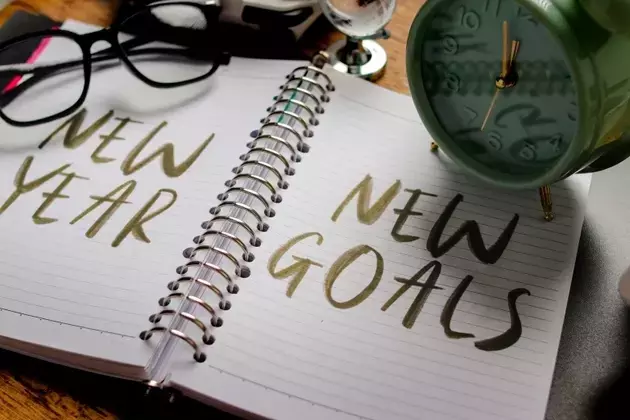 NEW
YEAR
NEW
GOALS
10